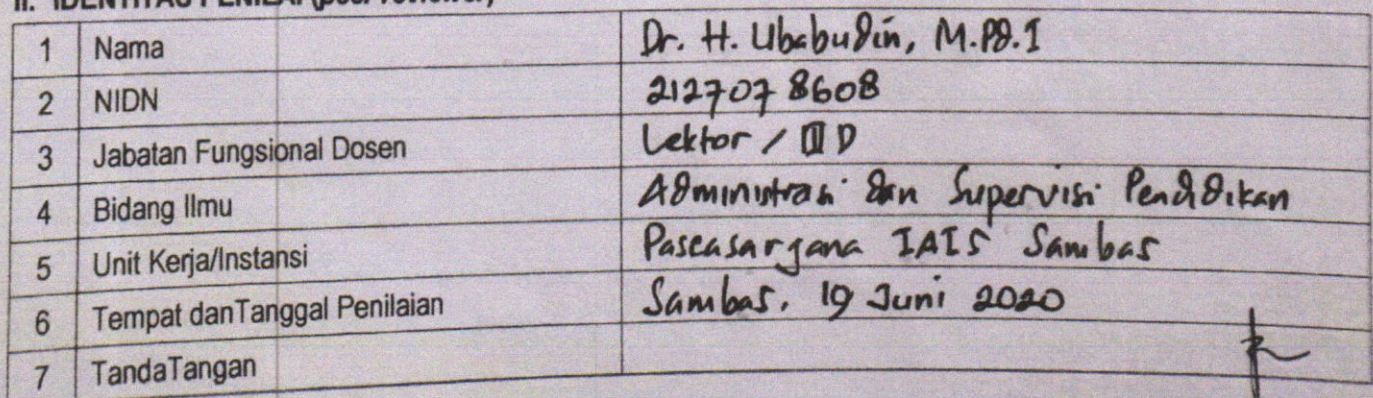 II. IDENTITAS PENILAI (peer reviewer)
1 Nama Dr. H. Ubabudin, M.Pd.I
2 NIDN 2127078608
3 Jabatan Fungsional Dosen Lektor / III D
4 Bidang Ilmu Administrasi dan Supervisi Pendidikan
5 Unit Kerja/Instansi Pascasarjana IAIS Sambas
6 Tempat danTanggal Penilaian Sambas, 19 Juni 2020
7 TandaTangan